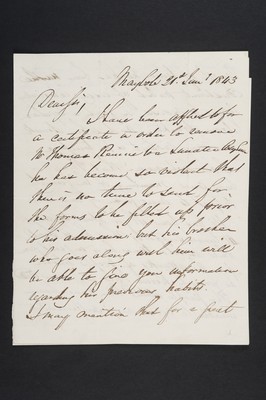 Maybole 21st Jany 1843
Dear Sir,
I have been applied to for
a certificate in order to remove
Mr Thomas Rennie to a Lunatic Asylum
he has become so violent that
there is no time to send for
the forms to be filled up prior
to his admission but his brother
who goes along with him will
be able to give you information
regarding his previous habits.
I may mention that for a great